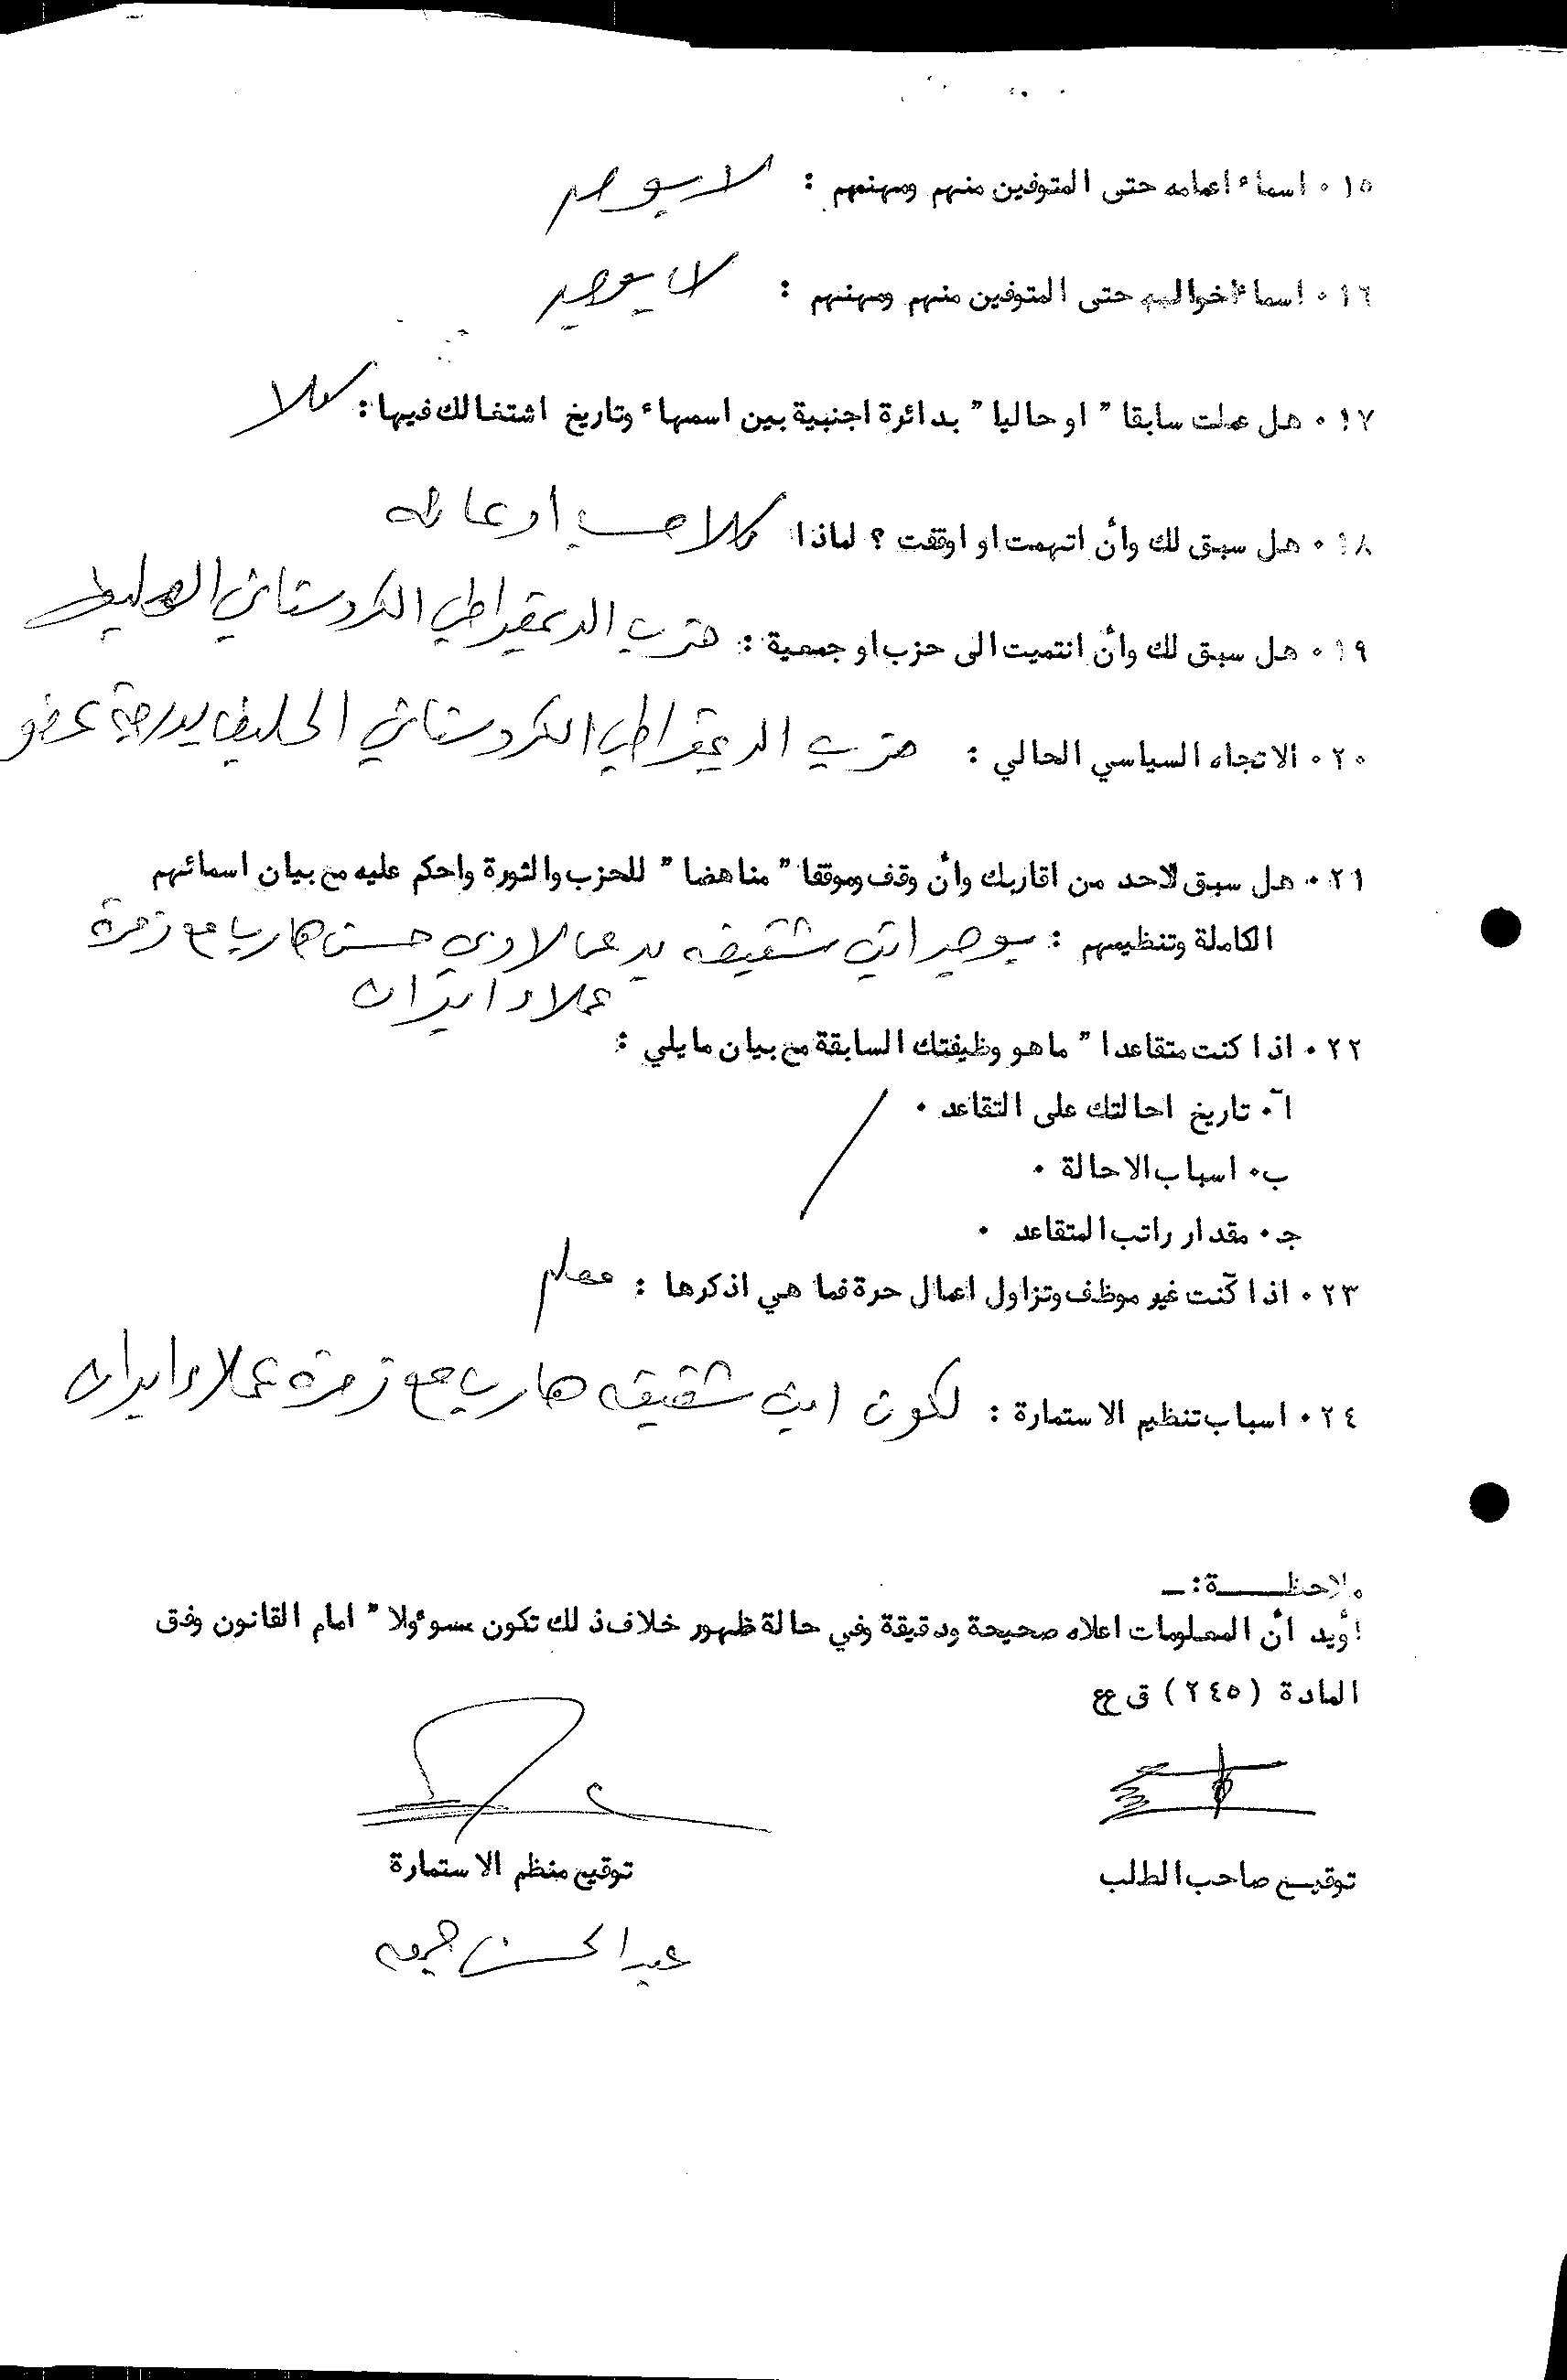 ١٥٠ اسماء اعمامه حتى المتوفين منهم ومهنهم : لا يوجد
١٦٠ اسماء اخواله حتى المتوفين منهم ومهنهم : لا يوجد
١٧٠ هل عملت سابقا" او حاليا" بدائرة اجنبية بين اسمهاء وتاريخ اشتغالك فيها : كلا
١٨٠ هل سبق لك وأن اتهمت او اوقفت ؟ لماذا كلا حسب ادعائه
١٩٠ هل سبق لك وأن انتميت الى حزب او جمعية : حزب الديمقراطي الكردستاني الحليف
٢٠٠ الاتجاه السياسي الحالي : حزب الديمقراطي الكردستاني الحليف بدرجة عضو
٢١٠ هل سبق لاحد من اقاربك وأن وقف موقفا" مناهضا" للحزب والثورة واحكم عليه مع بيان اسمائهم
الكاملة وتنظيمهم : يوجد ابن شقيقه يدعى حسن هاربا مع زمرة
عملاء ايران
٢٢٠ اذا كنت متقاعدا" ماهو وظيفتك السابقة مع بيان مايلي :
آ٠ تاريخ احالتك على التقاعد ٠
ب٠ اسباب الاحالة ٠
جـ٠ مقدار راتب المتقاعد ٠
٢٣٠ اذا كنت غير موظف وتزاول اعمال حرة فما هي اذكرها : معلم
٢٤٠ اسباب تنظيم الاستمارة : لكون ابن شقيقه هارب مع زمرة عملاء ايران
ملاحظـــــة :ـ
أؤيد أن المعلومات اعلاه صحيحة ودقيقة وفي حالة ظهور خلاف ذلك تكون مسوءولا" امام القانون وفق
المادة (٢٤٥) ق ع ع
توقيع صاحب الطلب
توقيع منظم الاستمارة
عبد الحسن